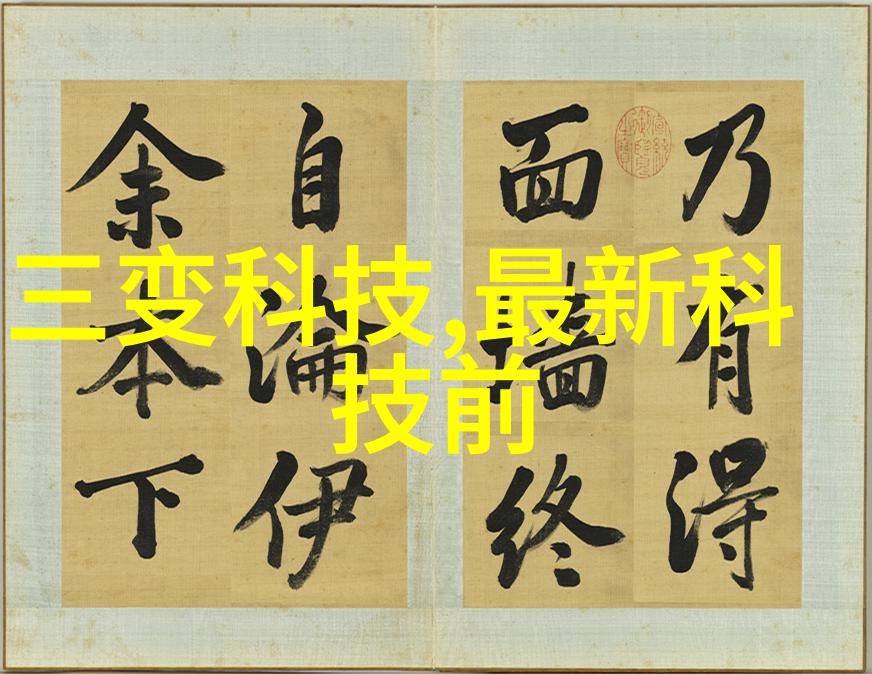 三变科技,最新科
技前
乃有得
面墙终
自淪伊
余本下